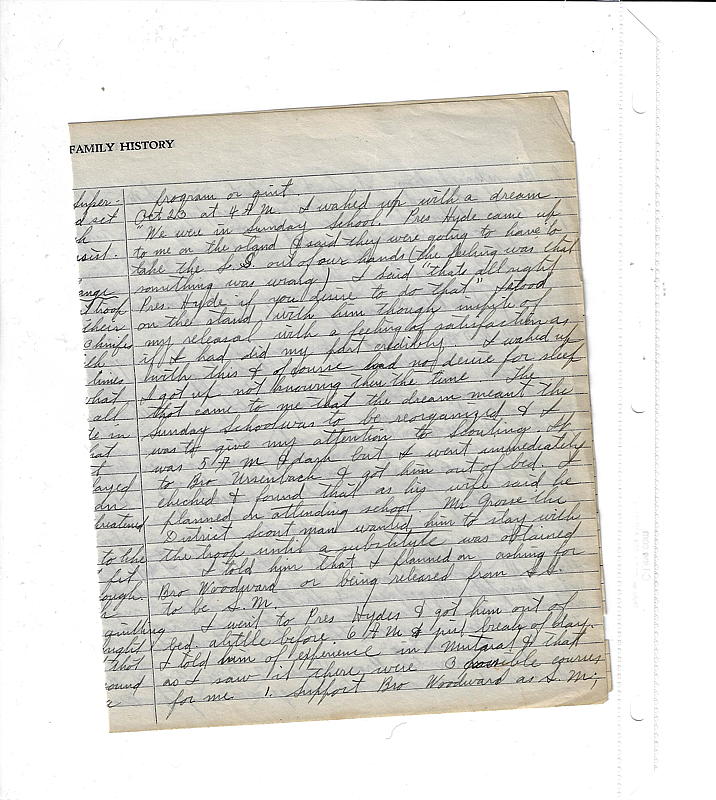 FAMILY HISTORY
program or quit.
Oct 23 at 4 A M I waked up with a dream
"We were in Sunday School. Pres Hyde came up
to me on the stand & said they were going to have to
take the S. S. out of our hands (the feeling was that
somthing was wrong) I said "thats all right
Pres. Hyde if you desire to do that" I stood
on the stand with him though inspite of
my releasal with a feeling of satisfaction as
if I had did my part credibly. I waked up
with this & of course had no desire for sleep
I got up not knowing then the time. The
that came to me that the dream meant the
Sunday School was to be reorganized & I
was to give my attention to Scouting. It
was 5 A M & dark but I went immediately
to Bro Ursenbach & got him out of bed. I
checked & found that as his wife said he
planned on attending school. Mr Grosse the
District Scout man wanted him to stay with
the troop until a substitute was obtained
I told him that I planned on asking for
Bro Woodward or being released from S.S.
to be S. M.
I went to Pres Hydes & got him out of
bed. alittle before 6 A M & just break of day.
I told him of experience in Mutual & that
as I saw it there were 3 possible courses
for me 1. Support Bro Woodward as S. M;
Super-
d set
h
sist.
ange
troop
their
lines
what
all
te in
hat
t
layed
on
to like
fit
ough.
h
quitting
ought
that
ound
a